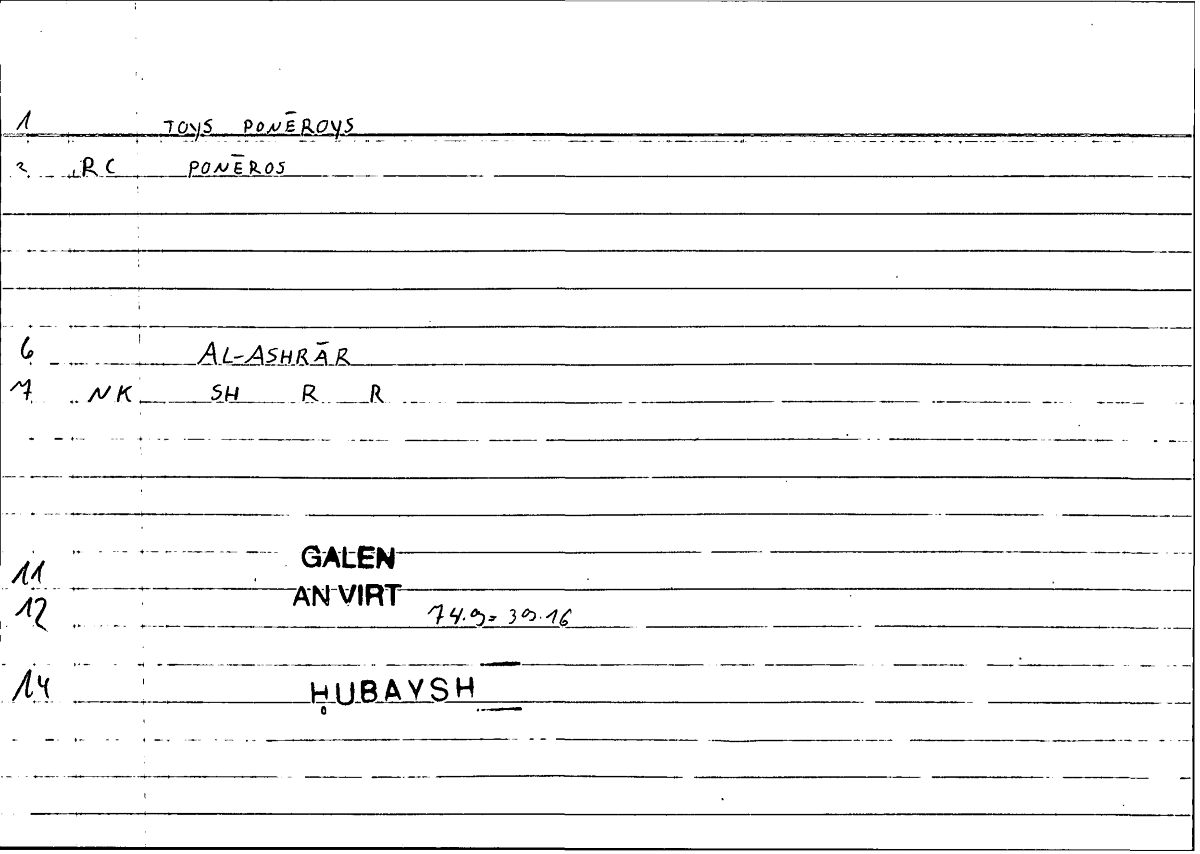 1 TOYS PONĒROYS
2 RC PONĒROS
6 AL-ASHRĀR
7 NK SH R R
11 GALEN
12 AN VIRT 74.9=39.16
14 ḤUBAYSH